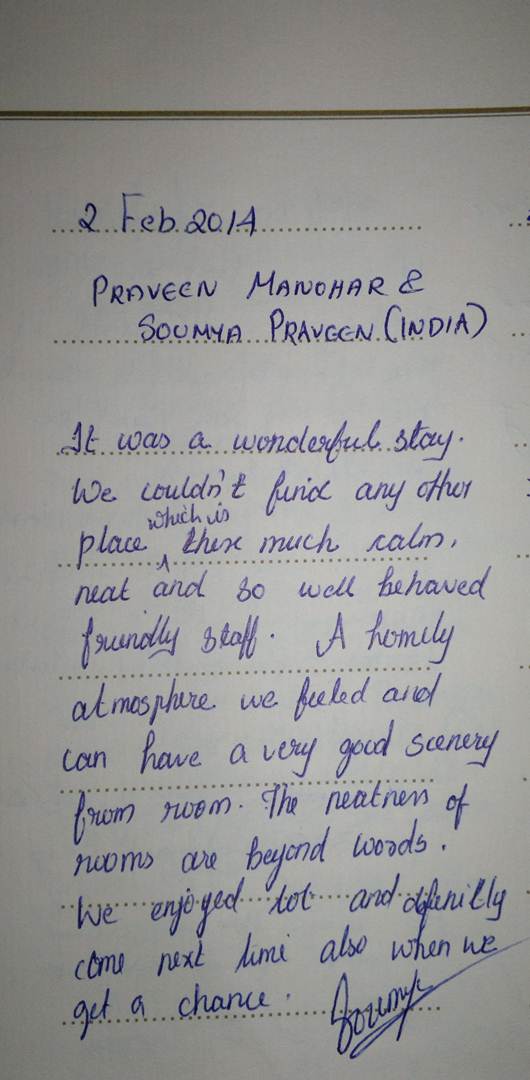 2 Feb 2014
PRAVEEN MANOHAR &
SOUMYA PRAVEEN (INDIA)
It was a wonderful stay.
We couldn't find any other
which is
place ^ this much calm,
neat and so well behaved
friendly staff. A homily
atmosphere we feeled and
can have a very good scenery
from room. The neatness of
rooms are beyond words.
We enjoyed lot and definitly
come next time also when we
get a chance. Soumya